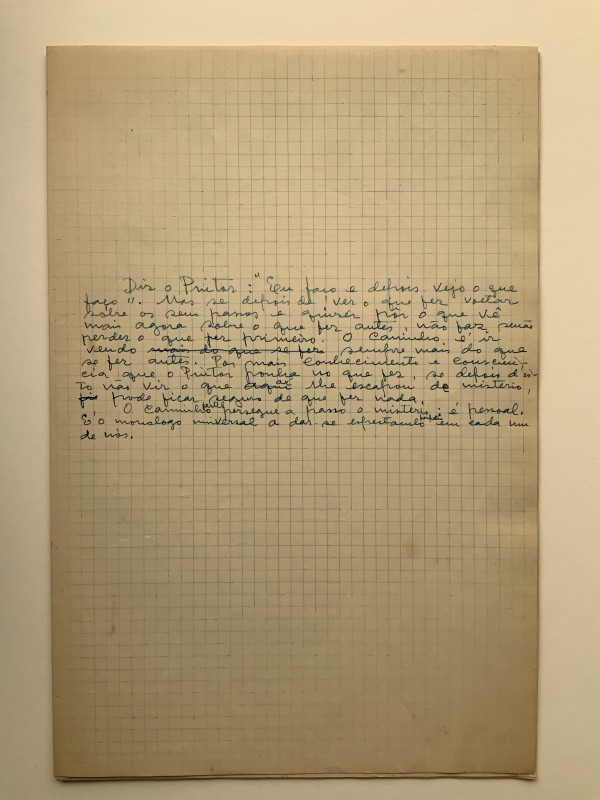 Diz o Pintor: "Eu faço e depois vejo o que
faço". Mas se depois de ver o que fez voltar
sobre os seus passos e quizer pôr o que vê
mais agora sobre o que fez antes, não faz senão
perder o que fez primeiro. O caminho é ir
vendo mais do que se fez sempre mais do que
se fez antes. Por mais conhecimento e consciên-
cia que o Pintor ponha no que fez, se depois d'is-
to não vir o que aqui lhe escapou de misterio,
pode ficar seguro de que fez nada.
O caminho persegue a passo o misterio: é pessoal.
E' o monologo universal a dar-se espectaculo em cada um
de nós.